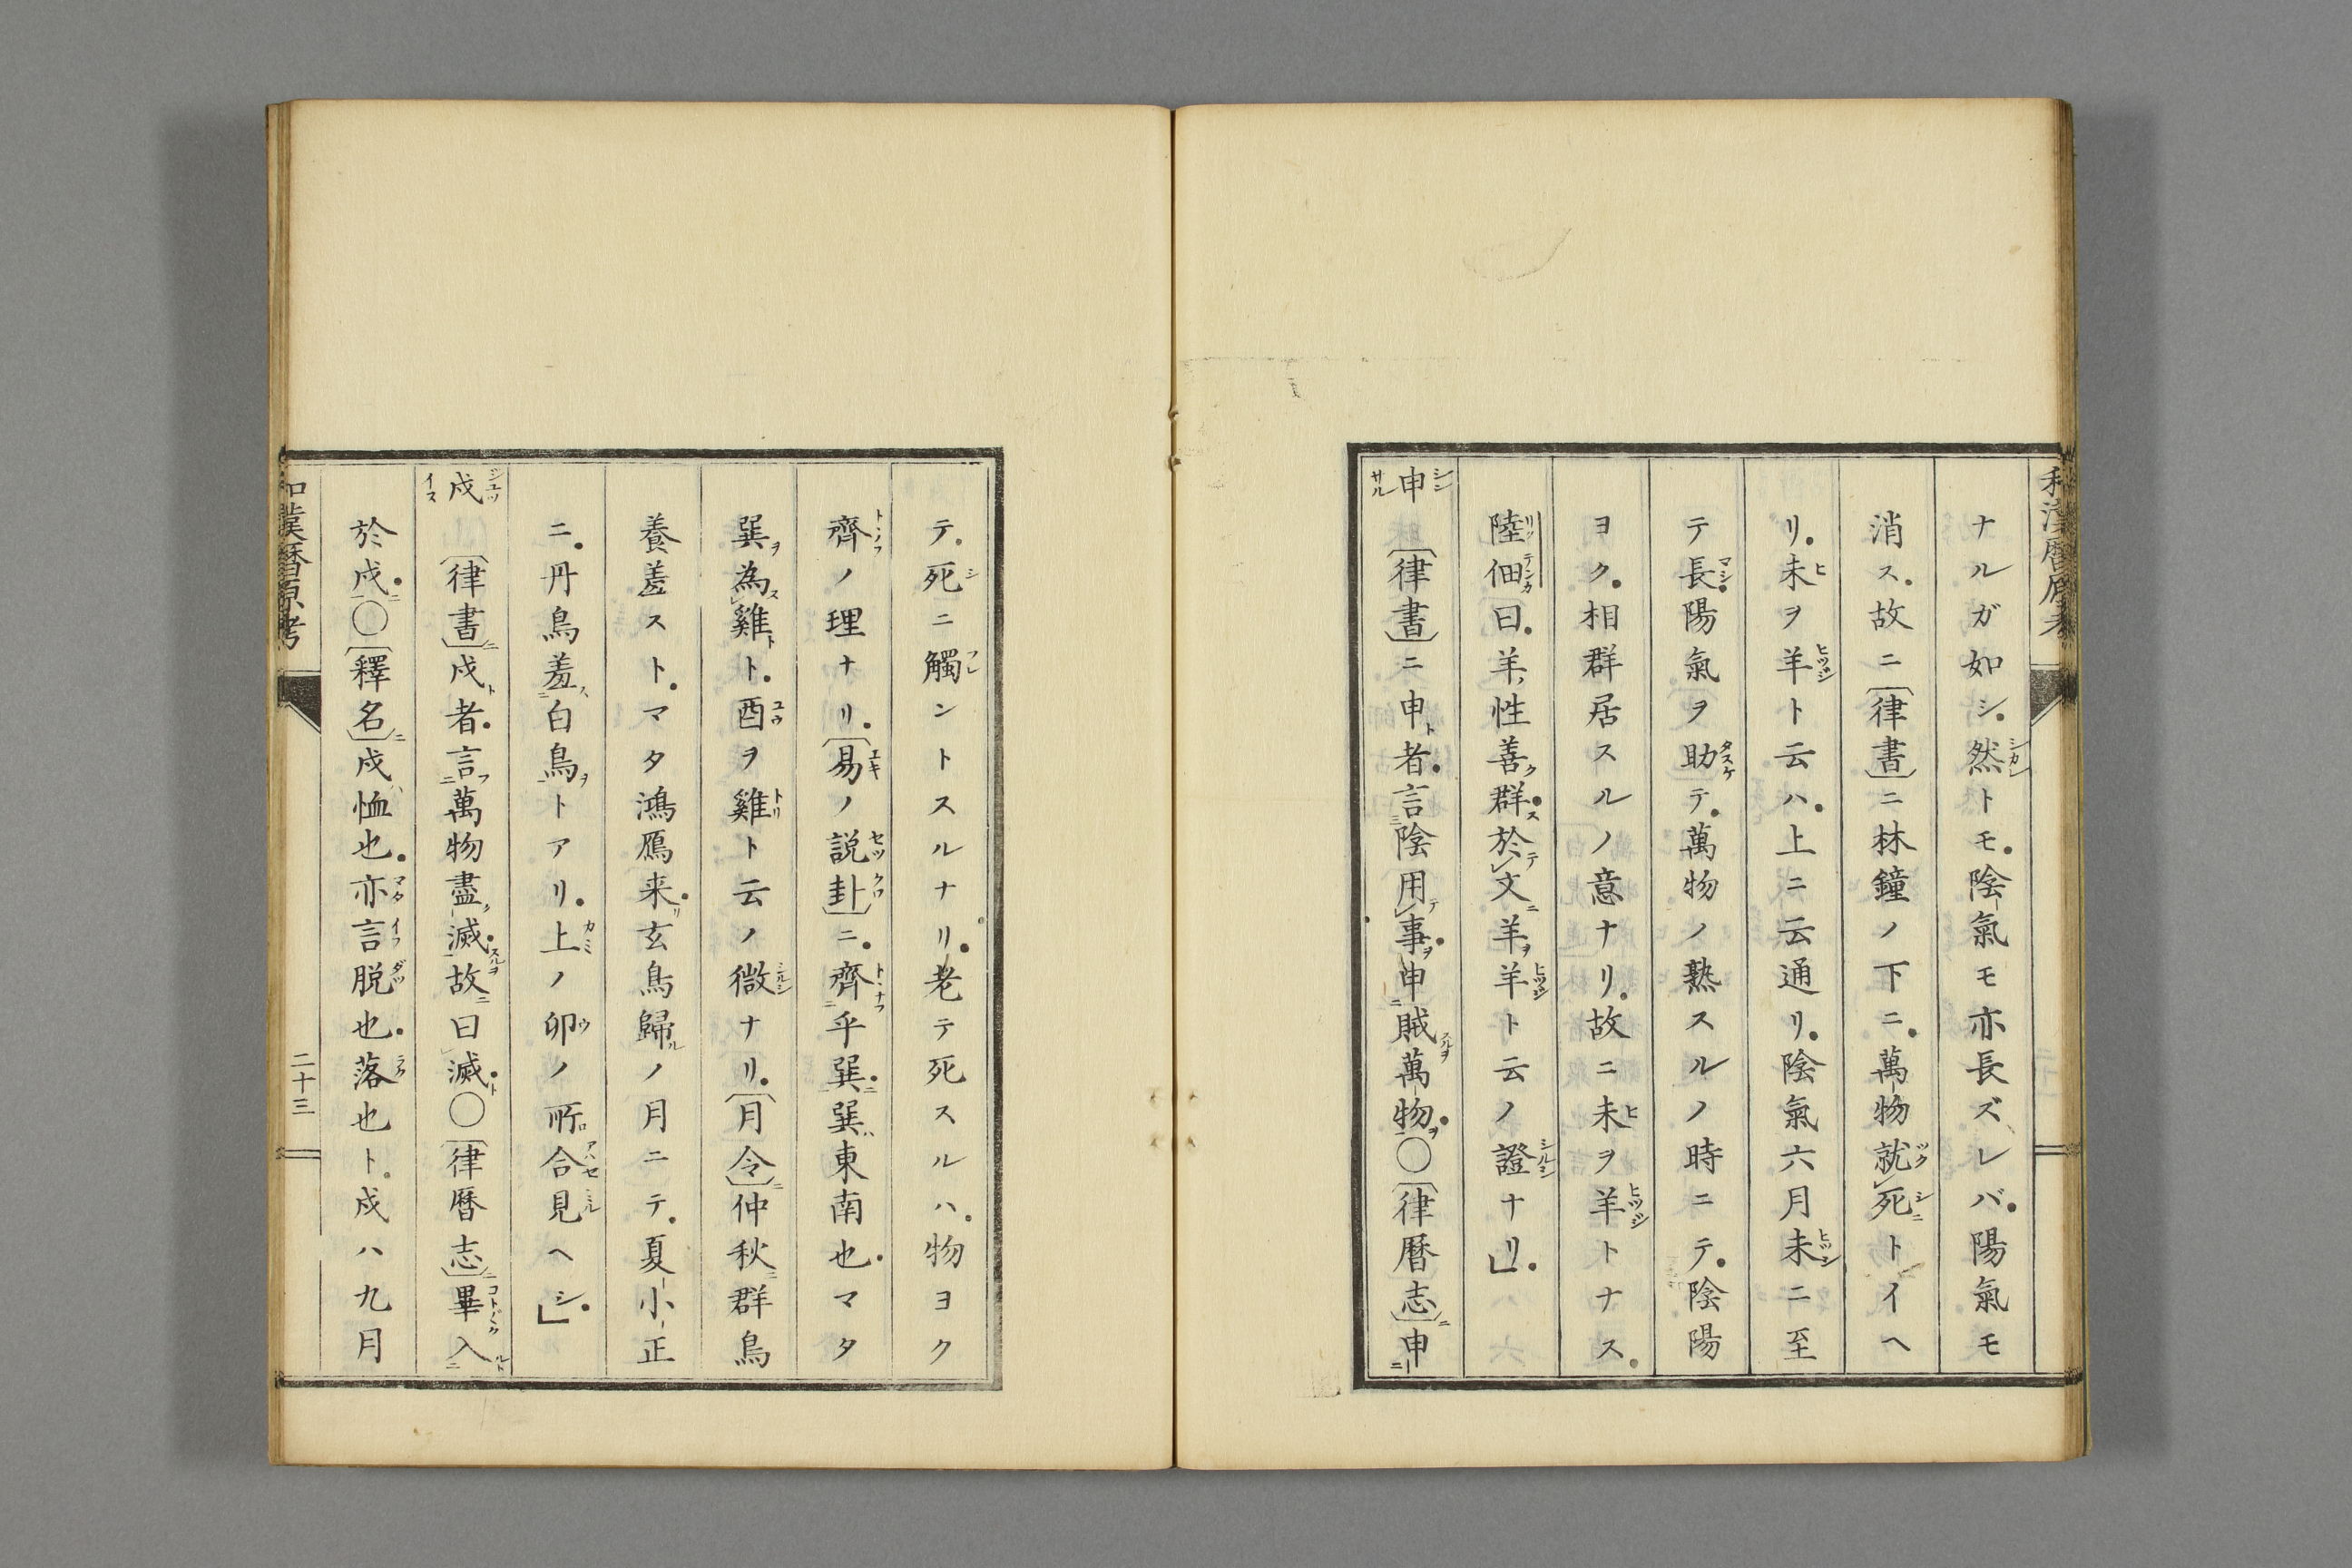 和漢暦原考
ナルガ如シ。然トモ。陰氣モ亦長ズレバ。陽氣モ
消ス。故ニ〔律書〕ニ林鐘ノ下ニ。萬物就死トイヘ
リ。未ヲ羊ト云ハ。上ニ云通リ。陰氣六月未ニ至
テ長。陽氣ヲ助テ。萬物ノ熟スルノ時ニテ。陰陽
ヨク。相群居スルノ意ナリ。故ニ未ヲ羊トナス。
陸佃曰。羊性善群。於文羊羊ト云ノ證ナリ」。
申〔律書〕ニ申者。言陰用事。申賊萬物。〇〔律暦志〕申
テ。死ニ觸ントスルナリ。老テ死スルハ。物ヨク
齊ノ理ナリ。〔易ノ説卦〕ニ。齊乎巽。巽東南也。マタ
巽為雞ト。酉ヲ雞ト云ノ徴ナリ。〔月令〕仲秋群鳥
養羞スト。マタ鴻鴈来。玄鳥歸ノ月ニテ。夏小正
ニ。丹鳥羞白鳥トアリ。上ノ卯ノ所合見ヘシ。」
戍〔律書〕戍者。言萬物盡滅。故曰滅。〇〔律暦志〕畢入
於戍。〇〔釋名〕戍恤也。亦言脱也。落也ト。戍ハ九月
和漢暦原考
二十三